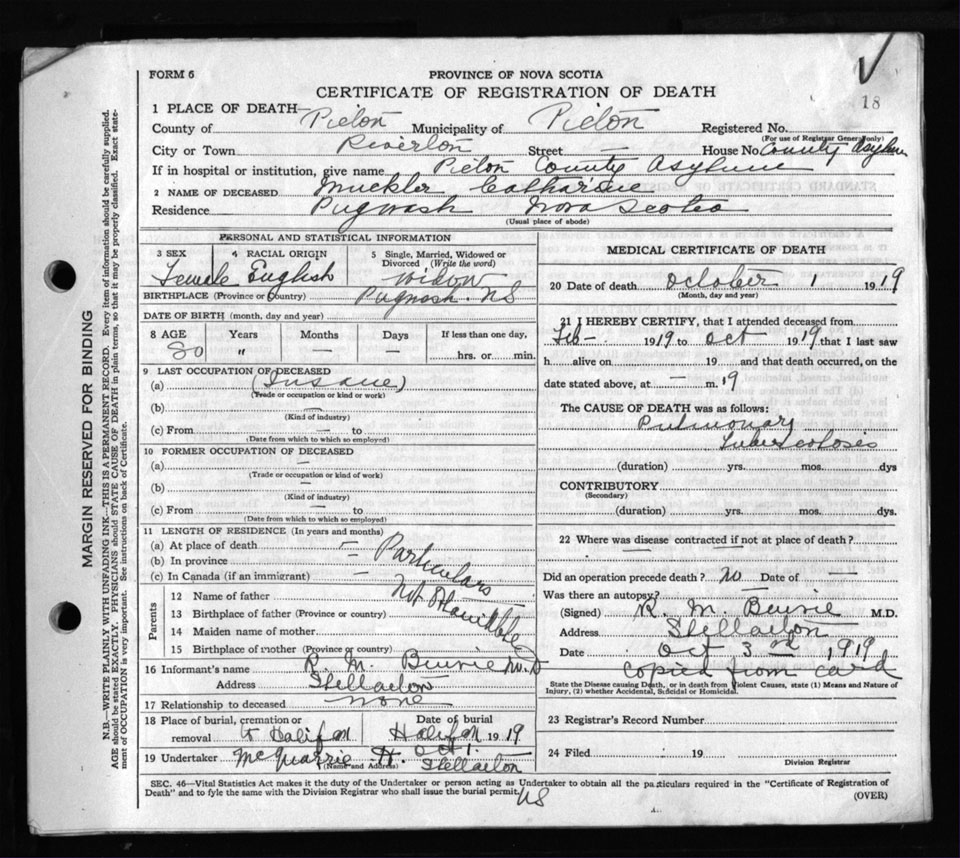 18
FORM 6
PROVINCE OF NOVA SCOTIA
CERTIFICATE OF REGISTRATION OF DEATH
1 PLACE OF DEATH—
County of Pictou Municipality of Pictou Registered No.
(For use of Registrar General only)
City or Town Riverton Street — House No. County Asylum
If in hospital or institution, give name Pictou County Asylum
2 NAME OF DECEASED Muckler Catharine
Residence Pugwash Nova Scotia
(Usual place of abode)
PERSONAL AND STATISTICAL INFORMATION
3 SEX 4 RACIAL ORIGIN 5 Single, Married, Widowed or Divorced (Write the word)
Female English Widow
BIRTHPLACE (Province or Country) Pugwash. NS
DATE OF BIRTH (month, day and year)
8 AGE Years Months Days If less than one day,
80 " — — hrs. or min.
9 LAST OCCUPATION OF DECEASED
(a) (Insane)
(Trade or occupation or kind of work)
(b) —
(Kind of industry)
(c) From — to
(Date from which to which so employed)
10 FORMER OCCUPATION OF DECEASED
(a) —
(Trade or occupation or kind of work)
(b) —
(Kind of industry)
(c) From — to
(Date from which to which so employed)
11 LENGTH OF RESIDENCE (In years and months)
(a) At place of death —
(b) In province —
(c) In Canada (if an immigrant) —
Particulars
Not Obtainable
Parents
12 Name of father
13 Birthplace of father (Province or country)
14 Maiden name of mother
15 Birthplace of mother (Province or country)
16 Informant's name R. M. Benvie M.D
Address Stellarton
17 Relationship to deceased none
18 Place of burial, cremation or removal to Halifax
Date of burial Halifax 1919
Oct 1.
19 Undertaker McQuarrie H. Stellarton
(Name and Address)
NS
MEDICAL CERTIFICATE OF DEATH
20 Date of death October 1 1919
(Month, day and year)
21 I HEREBY CERTIFY, that I attended deceased from
Feb— 1919 to Oct 1919 that I last saw
h alive on 19 and that death occurred, on the
date stated above, at — m. 19
The CAUSE OF DEATH was as follows:
Pulmonary
Tuberculosis
(duration) yrs. mos. dys
CONTRIBUTORY
(Secondary)
(duration) yrs. mos. dys.
22 Where was disease contracted if not at place of death?
Did an operation precede death? No Date of —
Was there an autopsy? —
(Signed) R. M. Benvie M.D.
Address Stellarton
Date Oct 3rd 1919
copied from card
State the Disease causing Death, or in death from Violent Causes, state (1) Means and Nature of
Injury, (2) whether Accidental, Suicidal or Homicidal.
23 Registrar's Record Number
24 Filed 19
Division Registrar
SEC. 46—Vital Statistics Act makes it the duty of the Undertaker or person acting as Undertaker to obtain all the particulars required in the "Certificate of Registration of
Death" and to fyle the same with the Division Registrar who shall issue the burial permit.
(OVER)
MARGIN RESERVED FOR BINDING
N.B.—WRITE PLAINLY WITH UNFADING INK—THIS IS A PERMANENT RECORD. Every item of information should be carefully supplied.
AGE should be stated EXACTLY. PHYSICIANS should STATE CAUSE OF DEATH in plain terms, so that it may be properly classified. Exact state-
ment of OCCUPATION is very important. See instructions on back of Certificate.